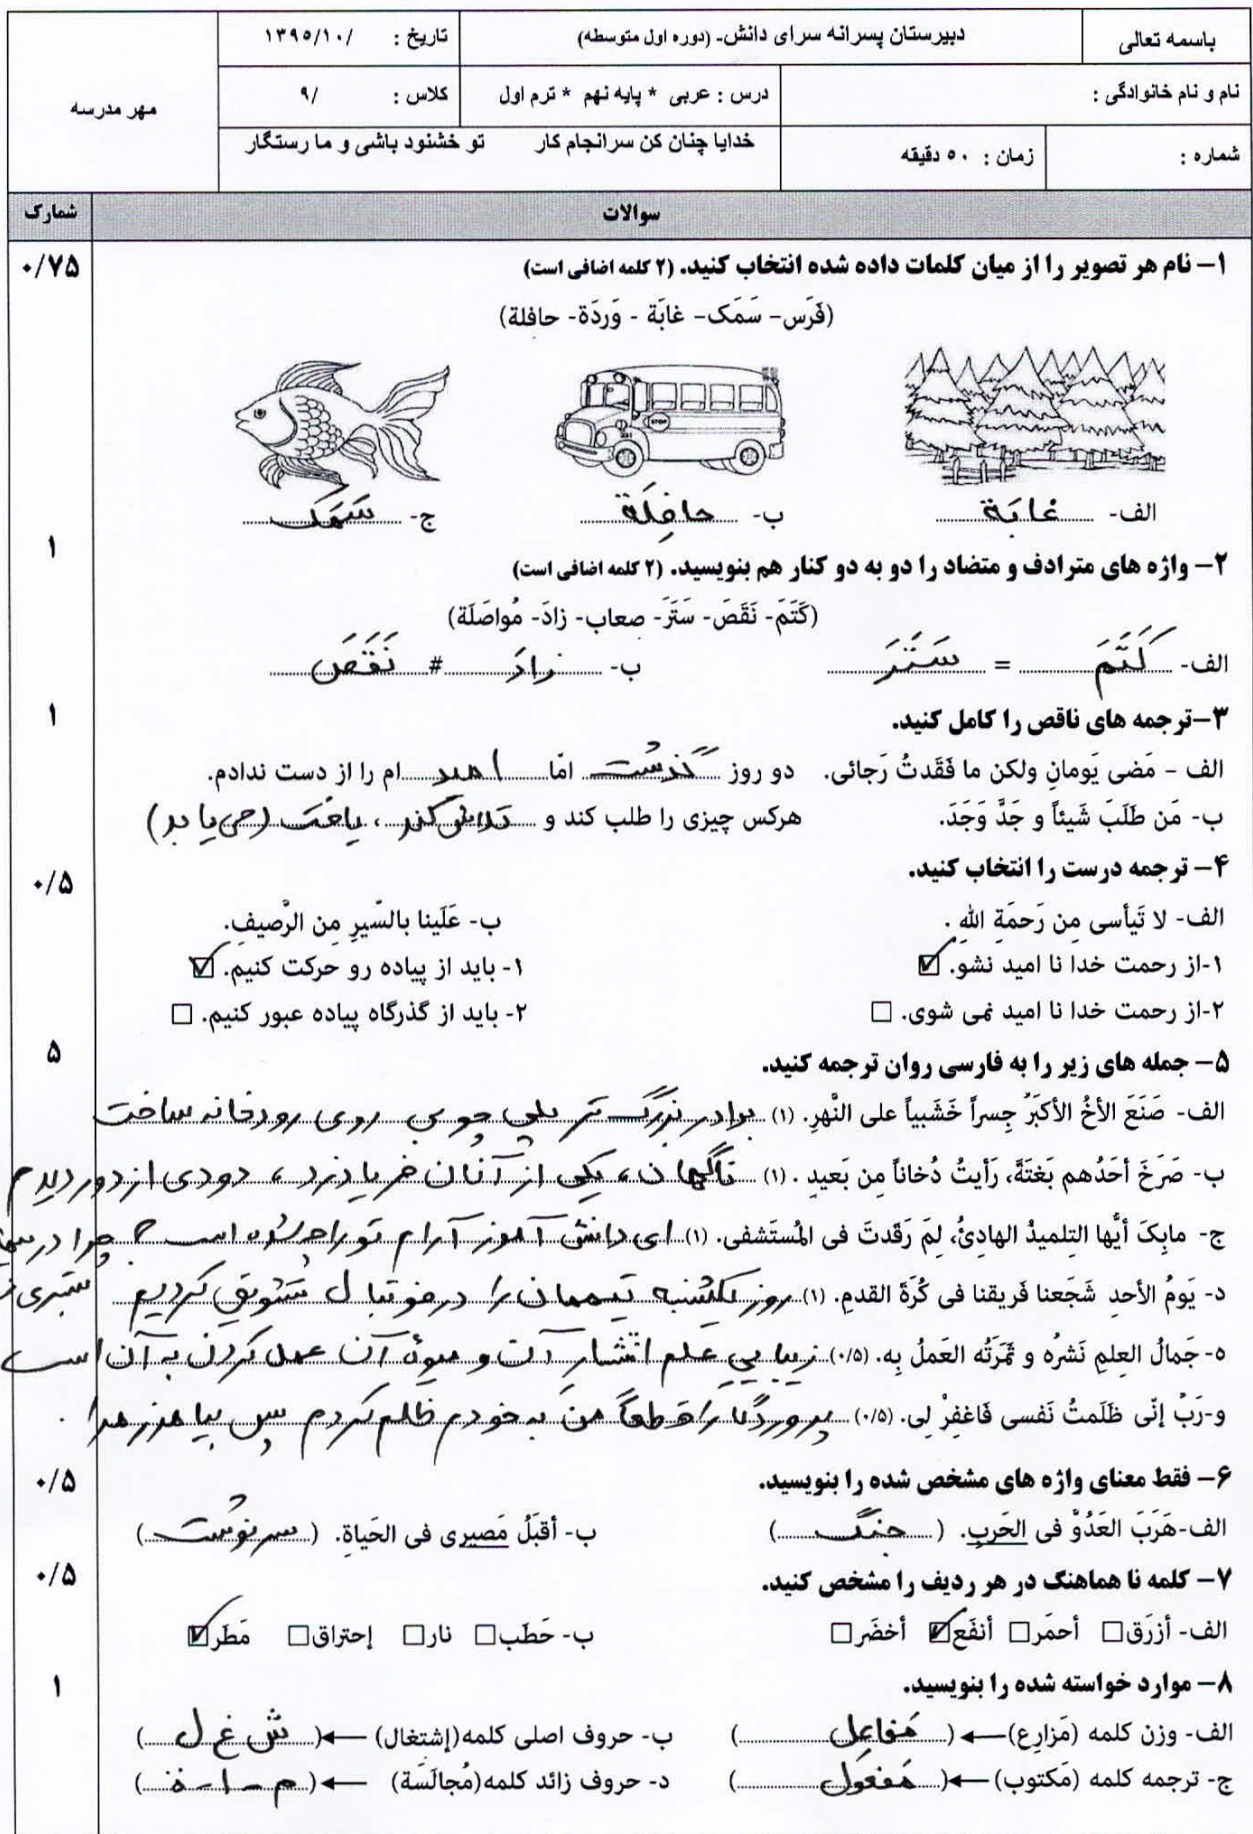 باسمه تعالی
دبیرستان پسرانه سرای دانش- (دوره اول متوسطه)
تاریخ : /۱۳۹۵/۱۰
مهر مدرسه
نام و نام خانوادگی :
درس : عربی * پایه نهم * ترم اول
کلاس : /۹
شماره :
زمان : ۵۰ دقیقه
خدایا چنان کن سرانجام کار تو خشنود باشی و ما رستگار
سوالات شمارک
۱- نام هر تصویر را از میان کلمات داده شده انتخاب کنید. (۲ کلمه اضافی است) ۰/۷۵
(فَرَس- سَمَک- غابَة - وَردَة- حافلة)
STOP
الف- غابَة ب- حافِلَة ج- سَمَک
۲- واژه های مترادف و متضاد را دو به دو کنار هم بنویسید. (۲ کلمه اضافی است) ۱
(کَتَمَ- نَقَصَ- سَتَرَ- صعاب- زادَ- مُواصَلَة)
الف- کَتَمَ = سَتَرَ ب- زادَ # نَقَصَ
۳-ترجمه های ناقص را کامل کنید. ۱
الف - مَضی یَومانِ ولکن ما فَقَدتُ رَجائی. دو روز گذشت امّا امید ام را از دست ندادم.
ب- مَن طَلَبَ شَیئاً و جَدَّ وَجَدَ. هرکس چیزی را طلب کند و تلاش کند، یافت (می یابد)
۴- ترجمه درست را انتخاب کنید. ۰/۵
الف- لا تَیأسی مِن رَحمَةِ اللهِ . ب- عَلَینا بالسَّیرِ مِن الرَّصیفِ.
۱-از رحمت خدا نا امید نشو. ☑ ۱- باید از پیاده رو حرکت کنیم. ☑
۲-از رحمت خدا نا امید نمی شوی. □ ۲- باید از گذرگاه پیاده عبور کنیم. □
۵- جمله های زیر را به فارسی روان ترجمه کنید. ۵
الف- صَنَعَ الأخُ الأکبَرُ جِسراً خَشَبیاً علی النَّهرِ. (۱) برادر بزرگ تر پلی چوبی روی رودخانه ساخت
ب- صَرَخَ أحَدُهم بَغتَةً، رَأیتُ دُخاناً مِن بَعیدٍ . (۱) ناگهان، یکی از آنان فریاد زد، دودی از دور دیدم
ج- مابِکَ أیُّها التِلمیذُ الهادِئُ، لِمَ رَقَدتَ فی المُستَشفی. (۱) ای دانش آموز آرام تو را چه شده است ؟ چرا در
بستری
د- یَومُ الأحدِ شَجَعنا فَریقنا فی کُرَةَ القدمِ. (۱) روز یکشنبه تیممان را در فوتبال تشویق کردیم
ه- جَمالُ العِلمِ نَشرُه و ثَمَرَتُه العَملُ بِه. (۰/۵) زیبایی علم انتشار آن و میوهٔ آن عمل کردن به آن است
و-رَبِّ إنّی ظَلَمتُ نَفسی فَاغفِرْ لِی. (۰/۵) پروردگارا قطعاً من به خودم ظلم کردم پس بیامرز مرا .
۶- فقط معنای واژه های مشخص شده را بنویسید. ۰/۵
الف-هَرَبَ العَدُوُّ فی الحَربِ. ( جنگ ) ب- أقبَلُ مَصیری فی الحَیاةِ. ( سرنوشت )
۷- کلمه نا هماهنگ در هر ردیف را مشخص کنید. ۰/۵
الف- أزرَق□ أحمَر□ أنفَع☑ أخضَر□ ب- حَطَب□ نار□ إحتراق□ مَطَر☑
۸- موارد خواسته شده را بنویسید. ۱
الف- وزن کلمه (مَزارِع) ←( مَفاعِل ) ب- حروف اصلی کلمه(إشتغال) ←( ش غ ل )
ج- ترجمه کلمه (مَکتوب) ←( مَفعول ) د- حروف زائد کلمه(مُجالَسَة) ←( م - ا - ة )